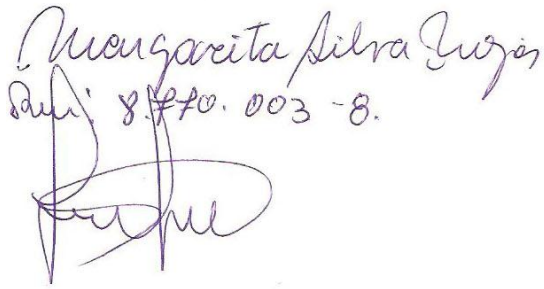 Margarita Silva Rojas
Rut: 8.770.003-8.